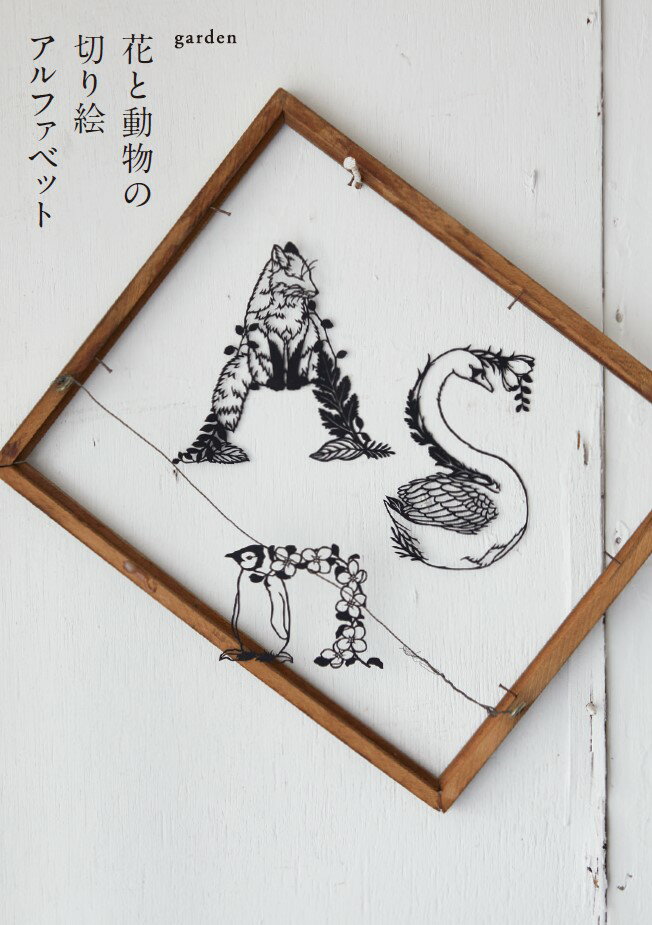 garden
花と動物の
切り絵
アルファベット
A
S
n